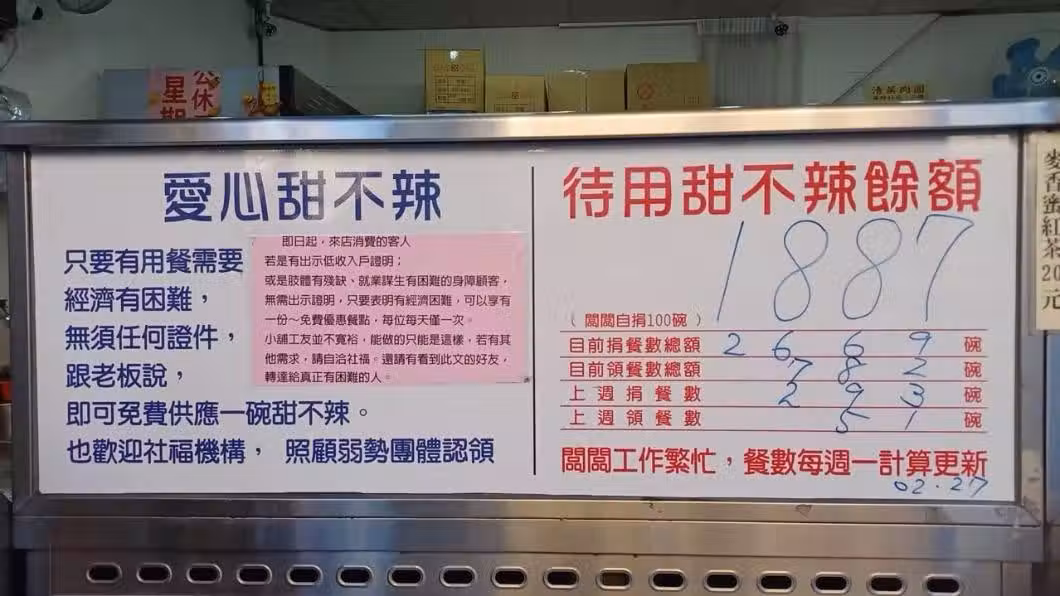 公休
星期
清蒸肉圓
愛心甜不辣
只要有用餐需要
經濟有困難，
無須任何證件，
跟老板說，
即可免費供應一碗甜不辣。
也歡迎社福機構， 照顧弱勢團體認領
即日起，來店消費的客人
若是有出示低收入戶證明；
或是肢體有殘缺、就業謀生有困難的身障顧客，
無需出示證明，只要表明有經濟困難，可以享有
一份～免費優惠餐點，每位每天僅一次。
小舖工友並不寬裕，能做的只能是這樣，若有其
他需求，請自洽社福。還請有看到此文的好友，
轉達給真正有困難的人。
待用甜不辣餘額
1887
（闆闆自捐100碗）
目前捐餐數總額 2669 碗
目前領餐數總額 782 碗
上週捐餐數 293 碗
上週領餐數 51 碗
闆闆工作繁忙，餐數每週一計算更新
02.27
麥香蜜紅茶20元